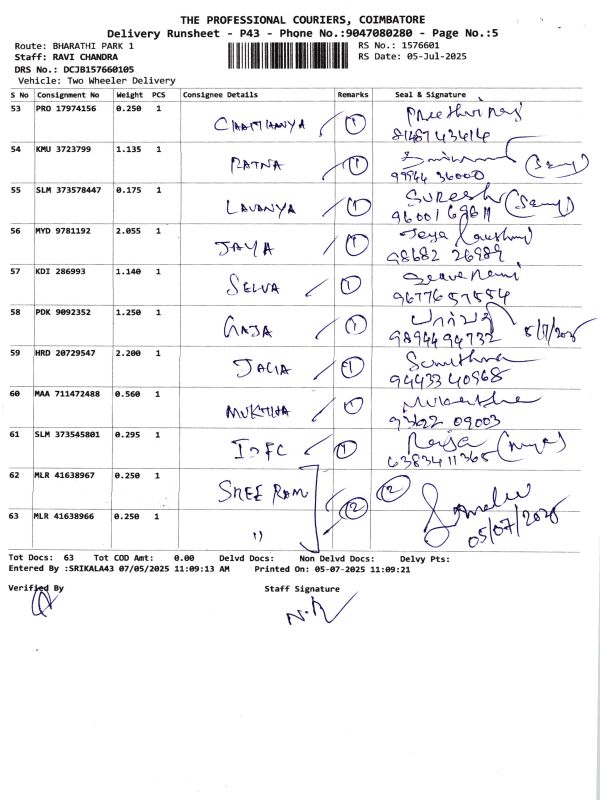 THE PROFESSIONAL COURIERS, COIMBATORE
Delivery Runsheet - P43 - Phone No.:9047080280 - Page No.:5
Route: BHARATHI PARK 1
RS No.: 1576601
Staff: RAVI CHANDRA
RS Date: 05-Jul-2025
DRS No.: DCJB157660105
Vehicle: Two Wheeler Delivery
S No Consignment No Weight PCS Consignee Details Remarks Seal & Signature
53 PRO 17974156 0.250 1 CHAITHANYA 1 Preethviraj
8148743414
54 KMU 3723799 1.135 1 RATNA 1
99944 36000
55 SLM 373578447 0.175 1 LAVANYA 1 Suresh
96001 69611
56 MYD 9781192 2.055 1 JAYA 1 Jeya Lakshmi
98682 26989
57 KDI 286993 1.140 1 SELVA 1
9677657554
58 PDK 9092352 1.250 1 GAJA 1
9894494732 5/7/2025
59 HRD 20729547 2.200 1 JACIA 1
94433 40968
60 MAA 711472488 0.560 1 MUKTHA 1
93622 09003
61 SLM 373545801 0.295 1 IDFC 1
6383411365
62 MLR 41638967 0.250 1 SREE RAM 2 2
63 MLR 41638966 0.250 1 " 05/07/2025
Tot Docs: 63 Tot COD Amt: 0.00 Delvd Docs: Non Delvd Docs: Delvy Pts:
Entered By :SRIKALA43 07/05/2025 11:09:13 AM Printed On: 05-07-2025 11:09:21
Verified By
Staff Signature
N.R